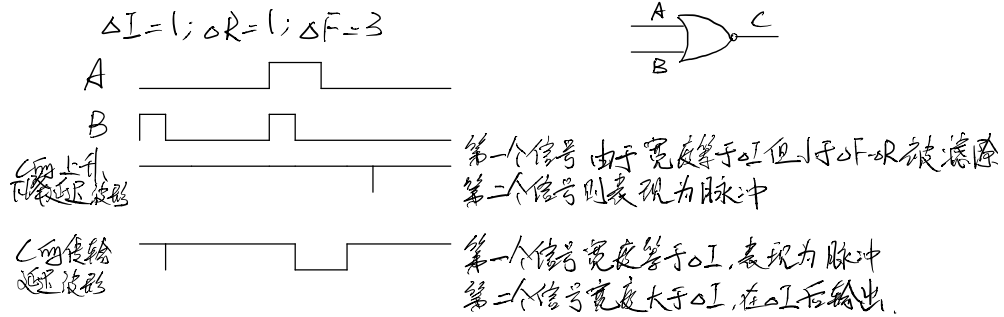 ΔI=1; ΔR=1; ΔF=3
A
C
B
A
B
C的上升、
下降延迟波形
第一个信号由于宽度等于ΔI但小于ΔF-ΔR被滤除
第二个信号则表现为脉冲
C的传输
延迟波形
第一个信号宽度等于ΔI,表现为脉冲
第二个信号宽度大于ΔI,在ΔI后输出.